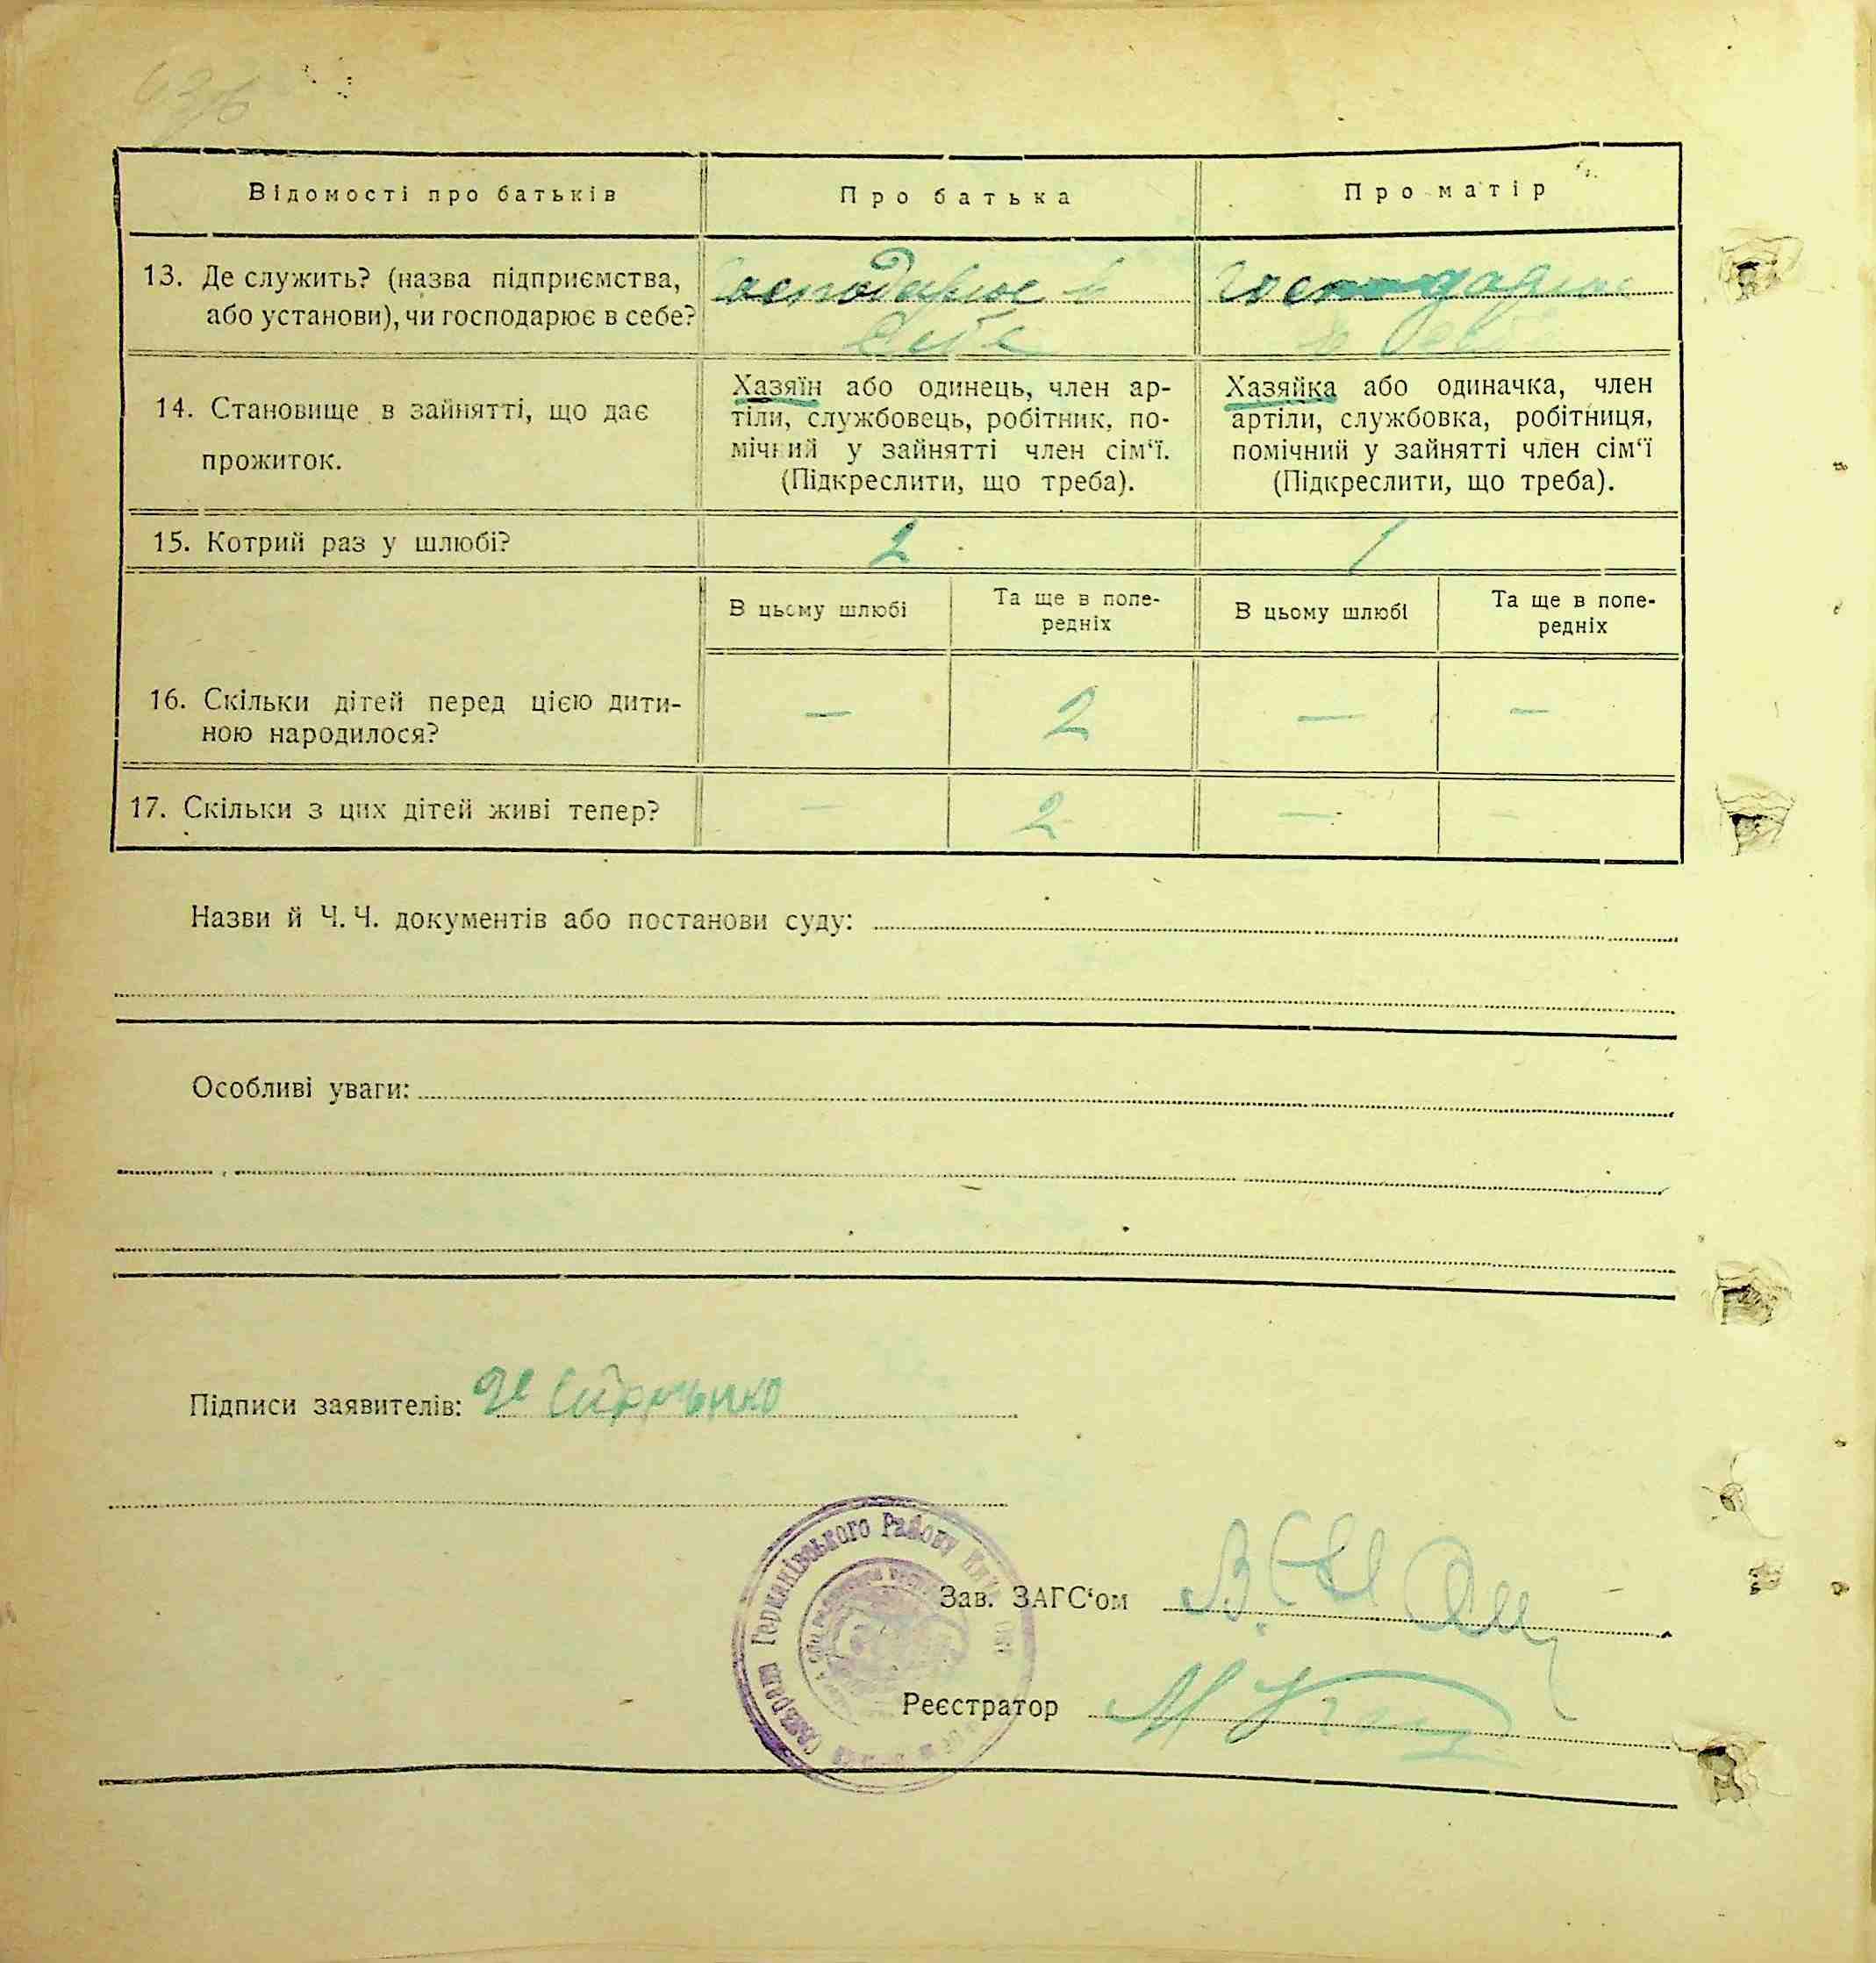 Відомості про батьків
Про батька
Про матір
13. Де служить? (назва підприємства,
або установи), чи господарює в себе?
господарює в
себе
господарює
в себе
14. Становище в зайнятті, що дає
прожиток.
Хазяїн або одинець, член ар-
тіли, службовець, робітник, по-
мічний у зайнятті член сім‘ї.
(Підкреслити, що треба).
Хазяйка або одиначка, член
артіли, службовка, робітниця,
помічний у зайнятті член сім‘ї
(Підкреслити, що треба).
15. Котрий раз у шлюбі?
2
1
В цьому шлюбі
Та ще в попе-
редніх
В цьому шлюбі
Та ще в попе-
редніх
16. Скільки дітей перед цією дити-
ною народилося?
—
2
—
—
17. Скільки з цих дітей живі тепер?
—
2
—
—
Назви й Ч. Ч. документів або постанови суду:
Особливі уваги:
Підписи заявителів:
Германівського Району
Зав. ЗАГС‘ом
Реєстратор